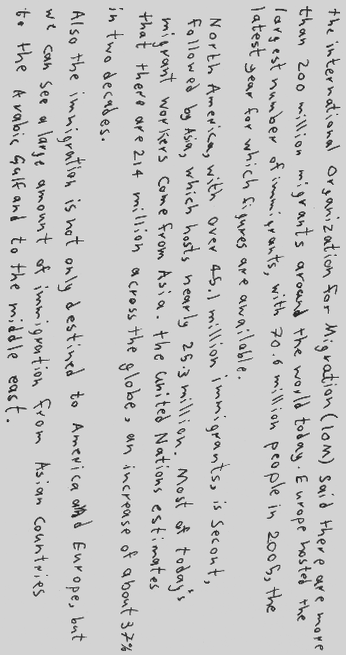 the international Organization for Migration (IOM) said there are more
than 200 million migrants around the world today. Europe hosted the
largest number of immigrants, with 70.6 million people in 2005, the
latest year for which figures are available.
North America, with over 45.1 million immigrants, is Secont,
followed by Asia, which hosts nearly 25.3 million. Most of today's
migrant workers come from Asia. the United Nations estimates
that there are 214 million across the globe, an increase of about 37%
in two decades.
Also the immigration is not only destined to America and Europe, but
we can see a large amount of immigration from Asian Countries
to the Arabic Gulf and to the middle east.